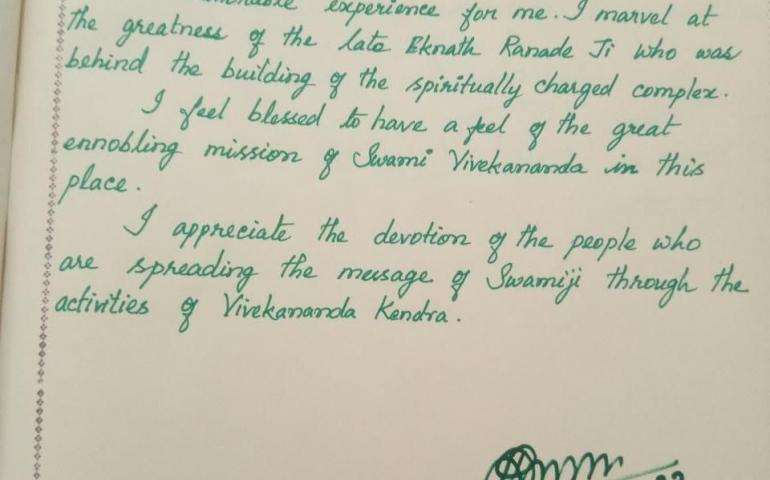 experience for me. I marvel at
the greatness of the late Eknath Ranade Ji who was
behind the building of the spiritually charged complex.
I feel blessed to have a feel of the great
ennobling mission of Swami Vivekananda in this
place.
I appreciate the devotion of the people who
are spreading the message of Swamiji through the
activities of Vivekananda Kendra.